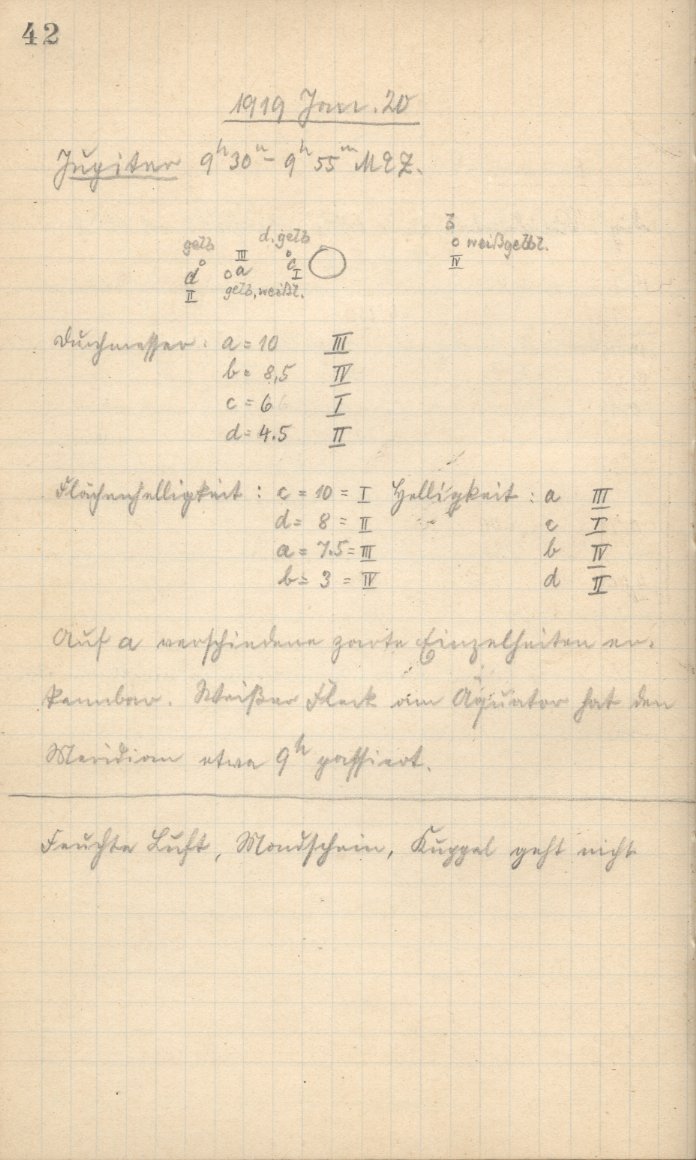 42
1919 Jan. 20
Jupiter 9h30m – 9h55m MEZ.
gelb III d. gelb b
d a c o weißgelbl.
II gelb, weißl. I IV
Durchmesser: a = 10 III
b = 8,5 IV
c = 6 I
d = 4.5 II
Flächenhelligkeit: c = 10 = I Helligkeit: a III
d = 8 = II c I
a = 7.5 = III b IV
b = 3 = IV d II
Auf a verschiedene zarte Einzelheiten er-
kennbar. Weißer Fleck am Äquator hat den
Meridian etwa 9h passiert.
Feuchte Luft, Mondschein, Kuppel geht nicht